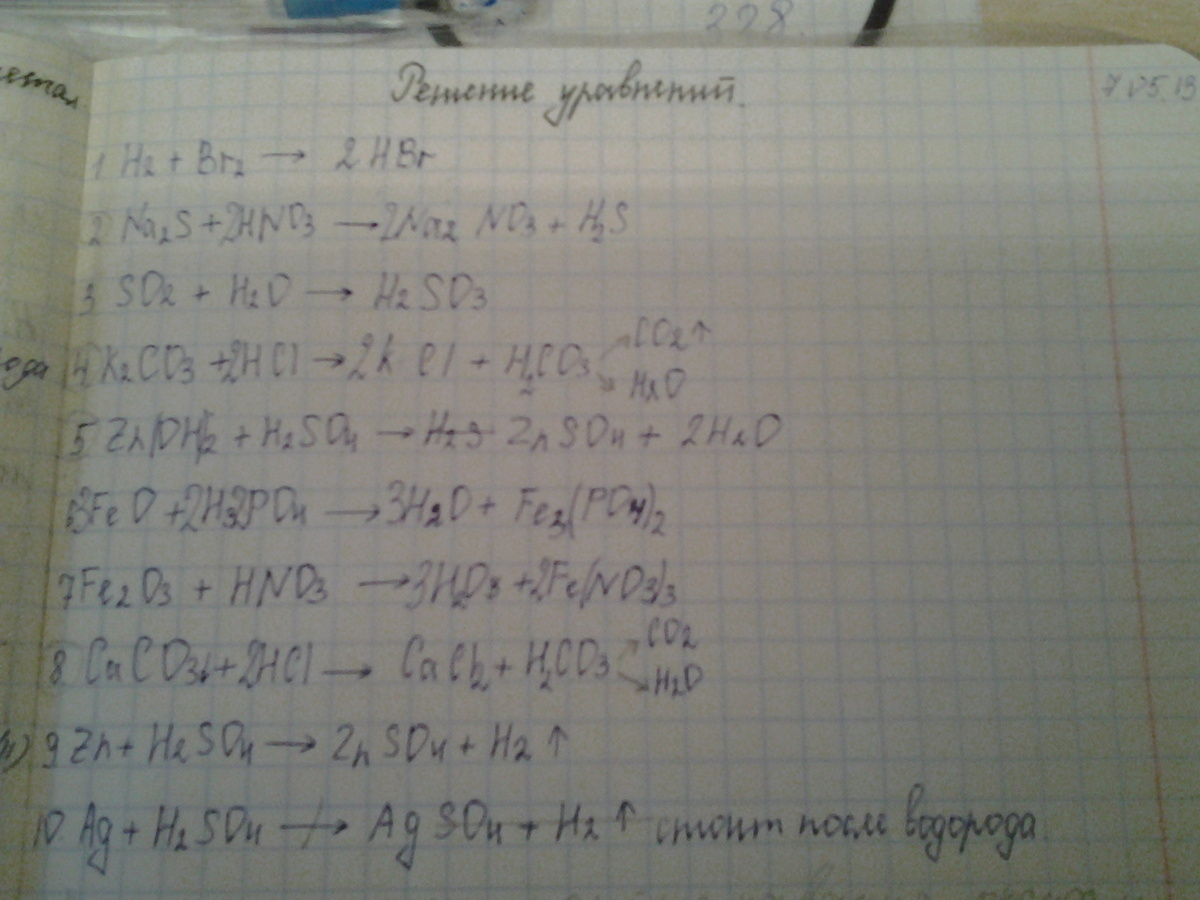 328.
Решение уравнений.
7.05.13
1 H₂ + Br₂ → 2HBr
2 Na₂S + 2HNO₃ → 2Na₂ NO₃ + H₂S
3 SO₂ + H₂O → H₂SO₃
4 K₂CO₃ + 2HCl → 2K Cl + H₂CO₃ CO₂↑
H₂O
5 Zn(OH)₂ + H₂SO₄ → H₂S ZnSO₄ + 2H₂O
6 3FeO + 2H₃PO₄ → 3H₂O + Fe₃(PO₄)₂
7 Fe₂O₃ + HNO₃ → 3H₂O + 2Fe(NO₃)₃
8 CaCO₃ + 2HCl → CaCl₂ + H₂CO₃ CO₂
H₂O
9 Zn + H₂SO₄ → ZnSO₄ + H₂↑
10. Ag + H₂SO₄ ↛ AgSO₄ + H₂↑ стоит после водорода.